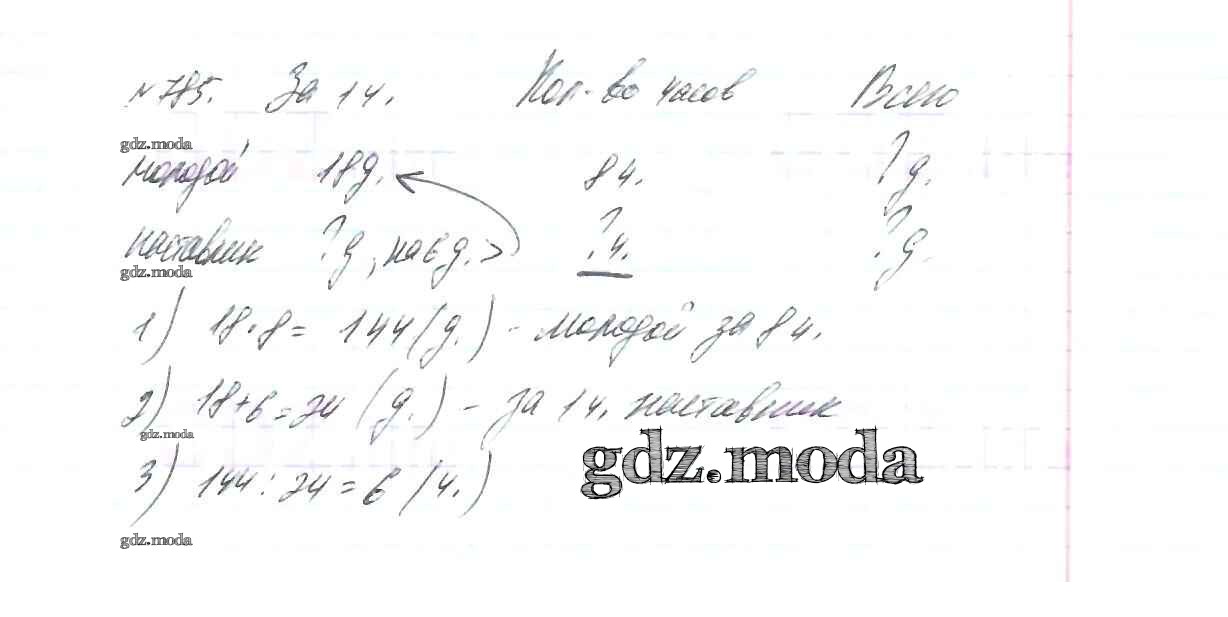 №785. За 1ч. Кол-во часов Всего
gdz.moda
молодой 18д. 8ч. ? д.
наставник ? д, на 6 д. > ? ч. ? д.
gdz.moda
1) 18·8 = 144 (д.) - молодой за 8ч.
2) 18+6=24 (д.) - за 1ч. наставник
gdz.moda
gdz.moda
3) 144:24=6 (ч.)
gdz.moda